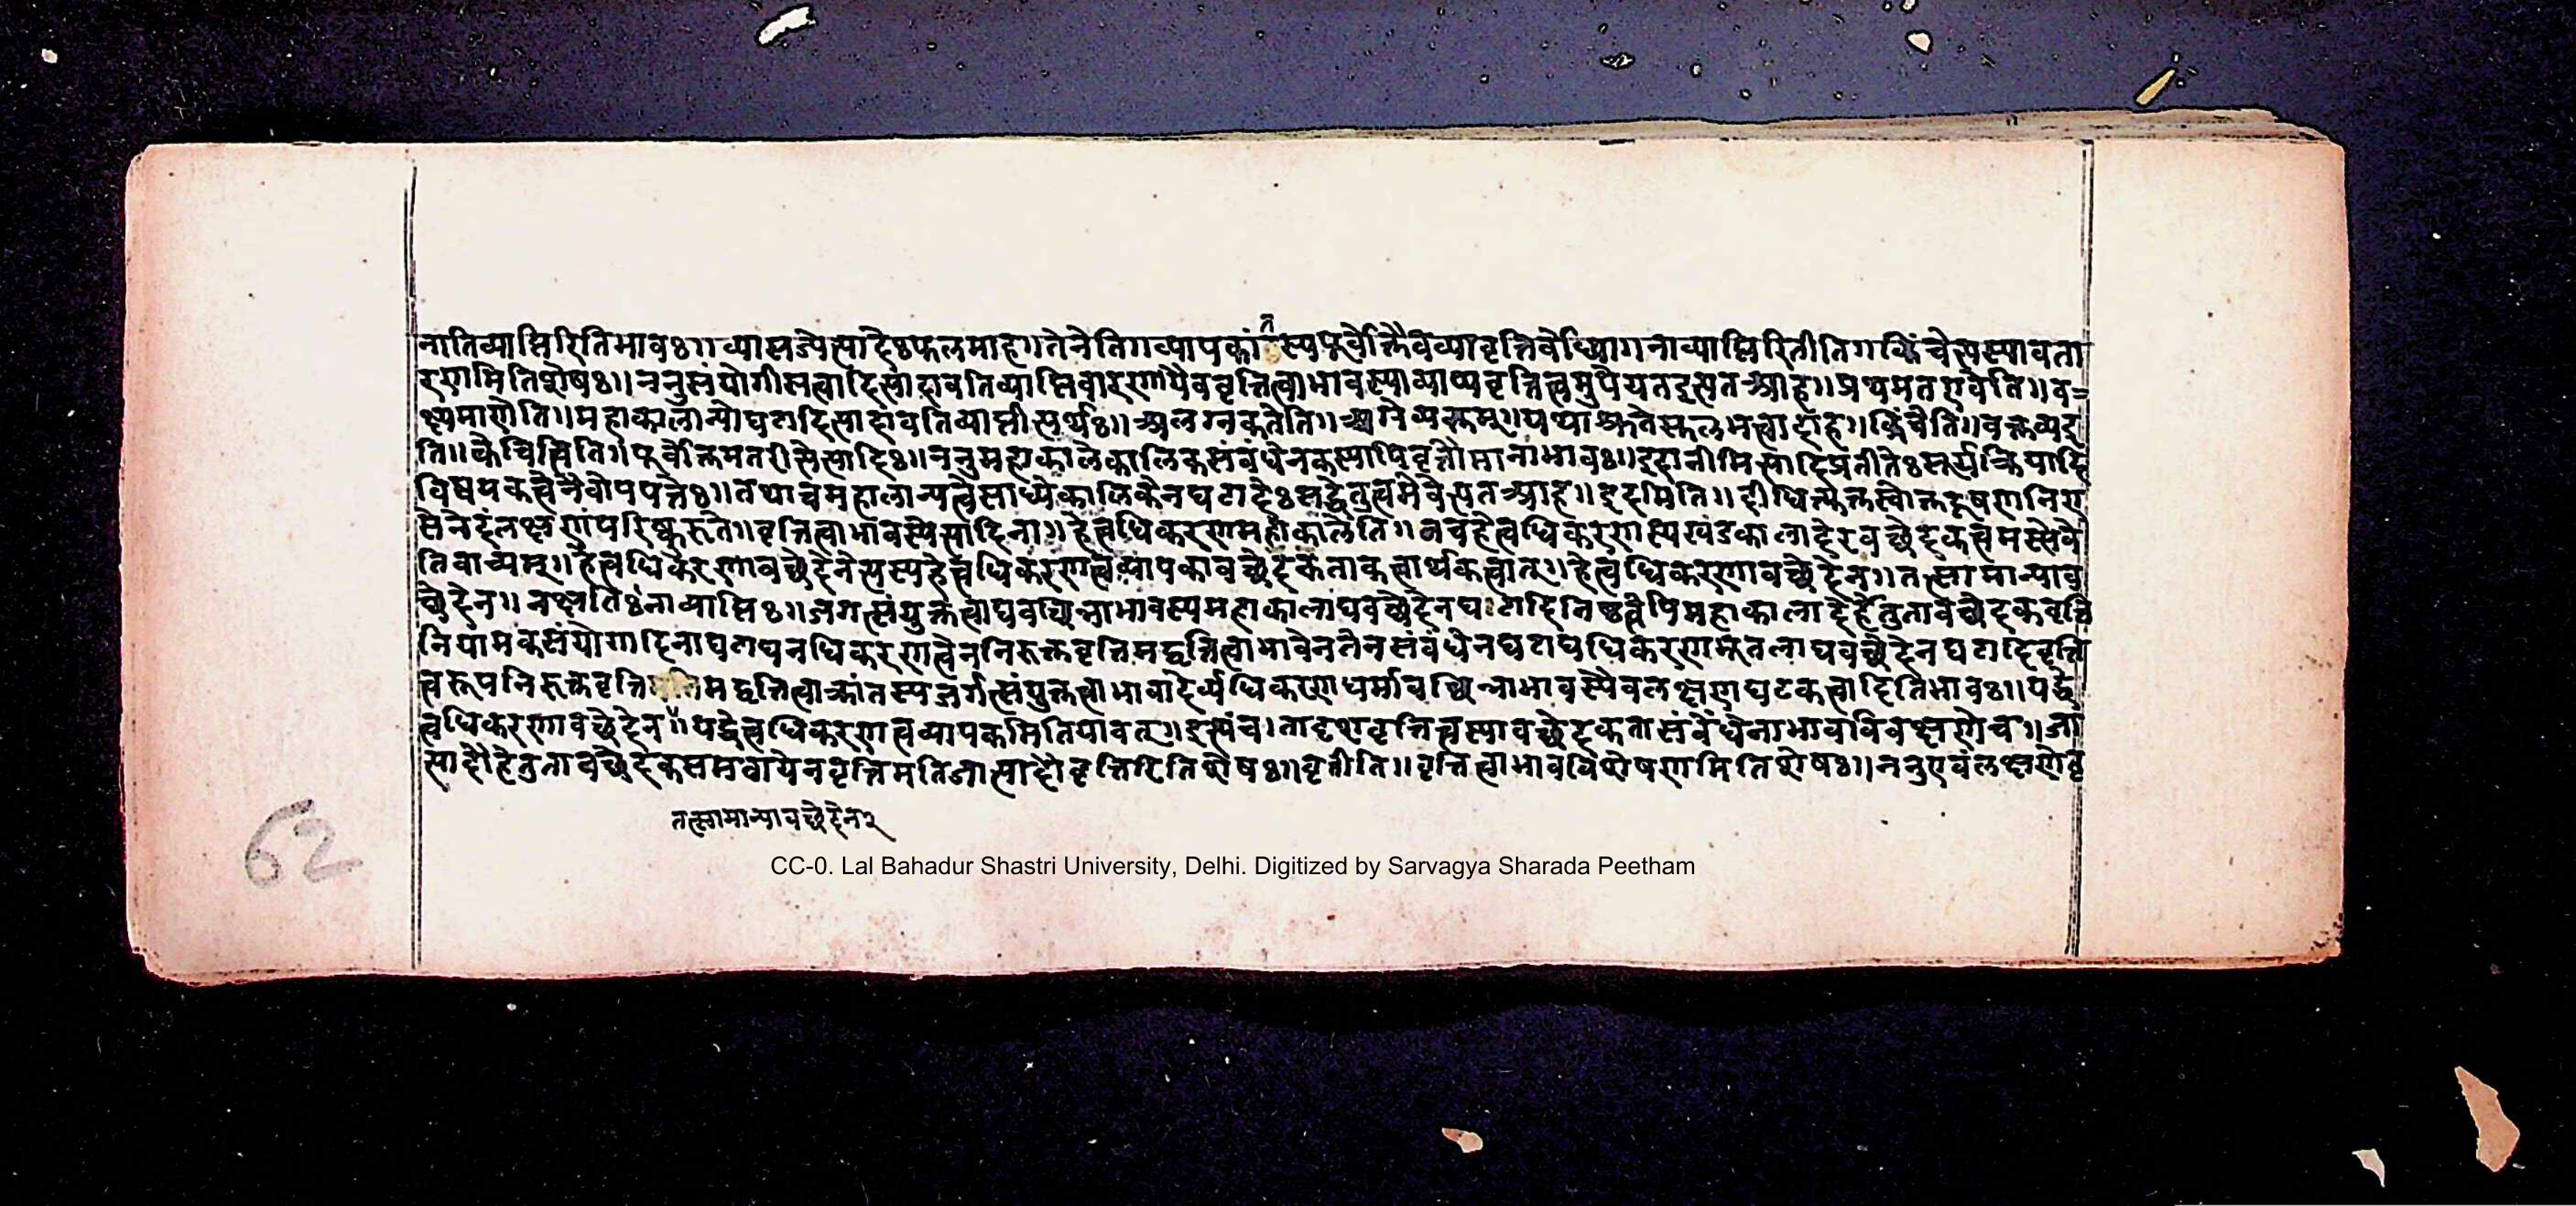 नातिव्याप्तिरितिभावः॥व्यासज्येत्यादेःफलमाह॥तेनेति॥व्यापकां स्यपूर्वोक्तैवव्यावृत्तिर्बोध्या॥नाव्याप्तिरितीति॥किंचेत्यस्यावता
रणमितिशेषः॥ननुसंयोगीसत्त्वादित्यादावतिव्याप्तिवारणायैववृत्तित्वाभावस्याव्याप्यवृत्तित्वमुपेयतइत्यतआह॥प्रथमतएवेति॥व=
क्ष्यमाणेति॥महाकालान्योघटादित्यादावतिव्याप्तीत्यर्थः॥अलग्नकतेति॥ वक्तव्यइ
ति॥केचित्त्विति॥पूर्वोक्तिमतरीत्येत्यादिः॥ननुमहाकालेकालिकसंबंधेनकस्यापिवृत्तौमानाभावः॥इदानीमित्यादिप्रतीतेःसूर्यक्रियादि
विषयकत्वेनैवोपपत्तेः॥तथाचमहालान्यत्वेसाध्येकालिकेनघटादेःसद्धेतुत्वमेवेत्यतआह॥इदमिति॥दीधित्युक्तस्वोक्तदूषणनिरा
सेनेदंलक्षणंपरिष्कुरुते॥वृत्तित्वाभावस्येत्यादिना॥हेत्वधिकरणमहाकालेति॥नचहेत्वधिकरणस्यखंडकालादेरवच्छेदकत्वमस्त्येवे
तिवाच्यम्॥हेत्वधिकरणावच्छेदेनेत्यस्यहेत्वधिकरणत्वव्यापकावच्छेदकताकत्वार्थकत्वात्॥हेत्वधिकरणावच्छेदेन॥तत्सामान्याव
च्छेदेन॥नक्षतिःनाव्याप्तिः॥जगत्संयुक्तत्वाद्यवच्छिन्नाभावस्यमहाकालाद्यवच्छेदेनघटादिनिष्ठत्वेपिमहाकालादेर्हेतुतावच्छेदकवृत्ति
नियामकसंयोगादिनाघटाद्यनधिकरणत्वेननिरुक्तवृत्तिमद्वृत्तित्वाभावेनतेनसंबंधेनघटाद्यधिकरणभूतलाद्यवच्छेदेनघटादिवृत्ति
त्वरूपनिरुक्तवृत्ति मद्वृत्तित्वाक्रांतस्यजगत्संयुक्तत्वाभावादेर्व्यधिकरणधर्मावच्छिन्नाभावस्यैवलक्षणघटकत्वादितिभावः॥यद्धे
त्वधिकरणावच्छेदेन॥यद्धेत्वधिकरणत्वव्यापकमितियावत्॥इत्थंच।तादृशवृत्तित्वस्यावच्छेदकतासंबंधेनाभावविवक्षणेच॥जा
त्यादौहेतुतावच्छेदकसमवायेनवृत्तिमतिजात्यादौवृत्तिरितिशेषः॥वृत्तीति॥वृत्तित्वाभावविशेषणमितिशेषः॥ननुएवंलक्षणेवृ
तत्सामान्यावच्छेदेन२
62
CC-0. Lal Bahadur Shastri University, Delhi. Digitized by Sarvagya Sharada Peetham